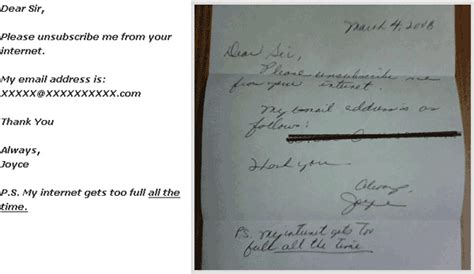 Dear Sir,
Please unsubscribe me from your
internet.
My email address is:
XXXXX@XXXXXXXXXX.com
Thank You
Always,
Joyce
P.S. My internet gets too full all the
time.
March 4, 2008
Dear Sir,
Please unsubscribe me
from your internet.
My email address is as
follows:
Thank you
Always,
Joyce
P.S. My internet gets too
full all the time